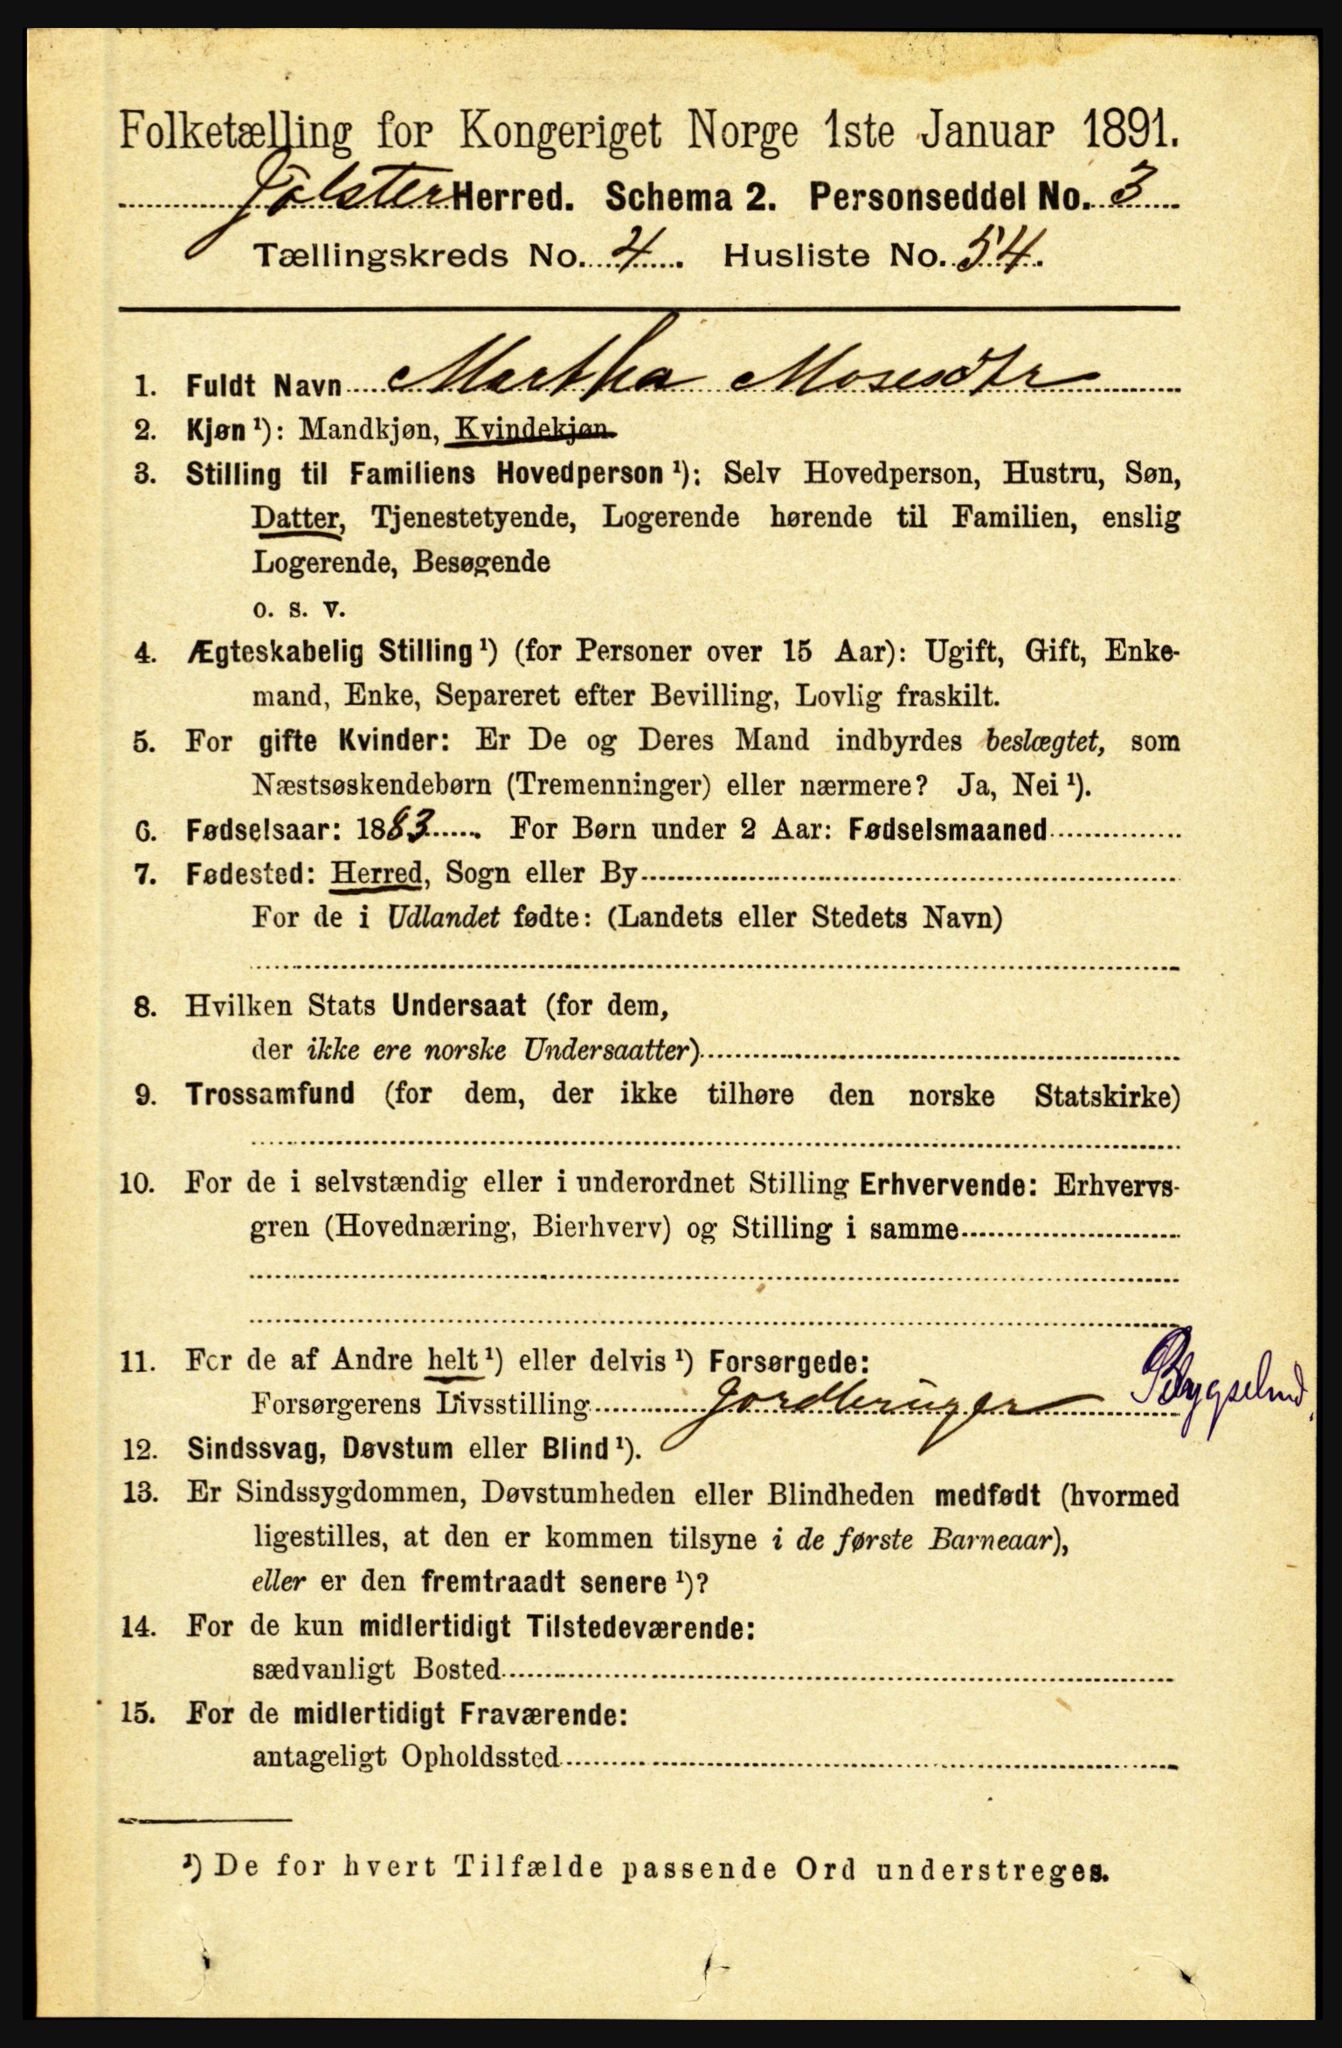 Folketælling for Kongeriget Norge 1ste Januar 1891.
Jölster Herred. Schema 2. Personseddel No. 3
Tællingskreds No. 4. Husliste No. 54.
1. Fuldt Navn Martha Mosesdtr
2. Kjøn ¹): Mandkjøn, Kvindekjøn
3. Stilling til Familiens Hovedperson ¹): Selv Hovedperson, Hustru, Søn,
Datter, Tjenestetyende, Logerende hørende til Familien, enslig
Logerende, Besøgende
o. s. v.
4. Ægteskabelig Stilling ¹) (for Personer over 15 Aar): Ugift, Gift, Enke-
mand, Enke, Separeret efter Bevilling, Lovlig fraskilt.
5. For gifte Kvinder: Er De og Deres Mand indbyrdes beslægtet, som
Næstsøskendebørn (Tremenninger) eller nærmere? Ja, Nei ¹).
6. Fødselsaar: 1883. For Børn under 2 Aar: Fødselsmaaned
7. Fødested: Herred, Sogn eller By
For de i Udlandet fødte: (Landets eller Stedets Navn)
8. Hvilken Stats Undersaat (for dem,
der ikke ere norske Undersaatter)
9. Trossamfund (for dem, der ikke tilhøre den norske Statskirke)
10. For de i selvstændig eller i underordnet Stilling Erhvervende: Erhvervs-
gren (Hovednæring, Bierhverv) og Stilling i samme
11. For de af Andre helt ¹) eller delvis ¹) Forsørgede:
Forsørgerens Livsstilling Jordbruger Bygselmd.
12. Sindssvag, Døvstum eller Blind ¹).
13. Er Sindssygdommen, Døvstumheden eller Blindheden medfødt (hvormed
ligestilles, at den er kommen tilsyne i de første Barneaar),
eller er den fremtraadt senere ¹)?
14. For de kun midlertidigt Tilstedeværende:
sædvanligt Bosted
15. For de midlertidigt Fraværende:
antageligt Opholdssted
¹) De for hvert Tilfælde passende Ord understreges.